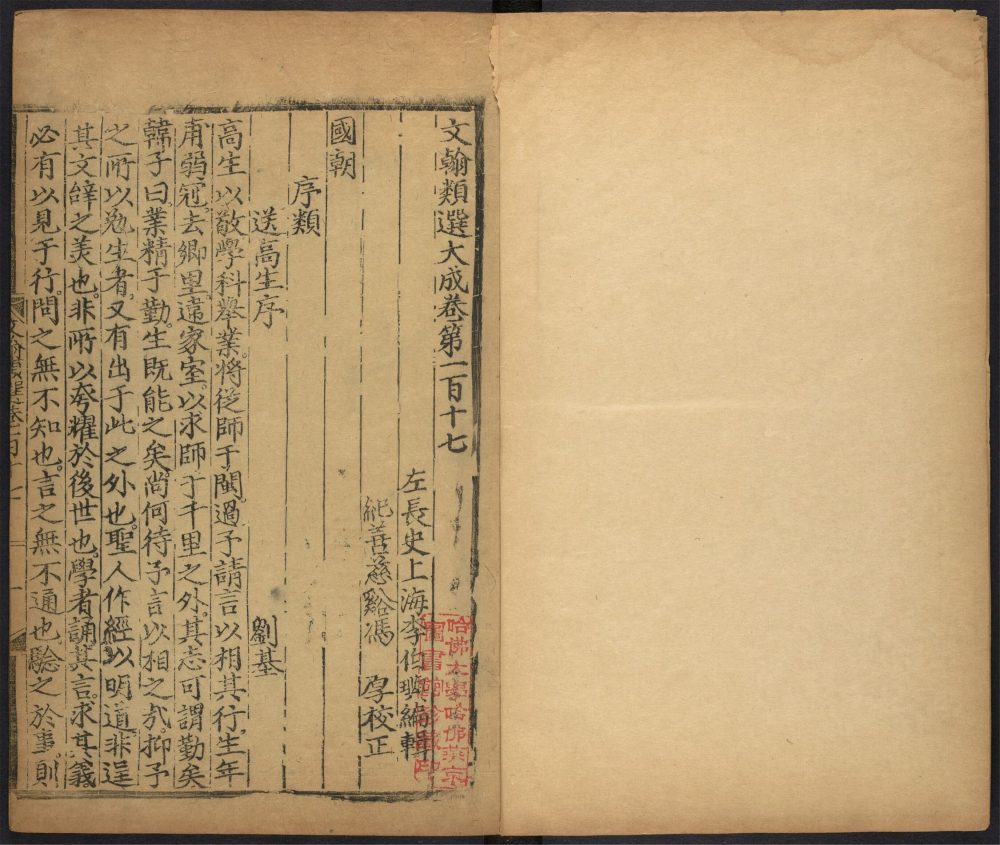 文翰類選大成卷第一百十七
左長史上海李伯璵編輯
紀善慈谿馮 厚校正
國朝
序類
送高生序 劉基
高生以敬學科舉業將從師于閩過予請言以相其行生年
甫弱冠去鄉里遠家室以求師于千里之外其志可謂勤矣
韓子曰業精于勤生既能之矣尚何待予言以相之㢤抑予
之所以勉生者又有出于此之外也聖人作經以明道非逞
其文辭之美也非所以夸耀於後世也學者誦其言求其義
必有以見于行問之無不知也言之無不通也驗之於事則
哈佛大學哈佛燕京
圖書館珍藏印